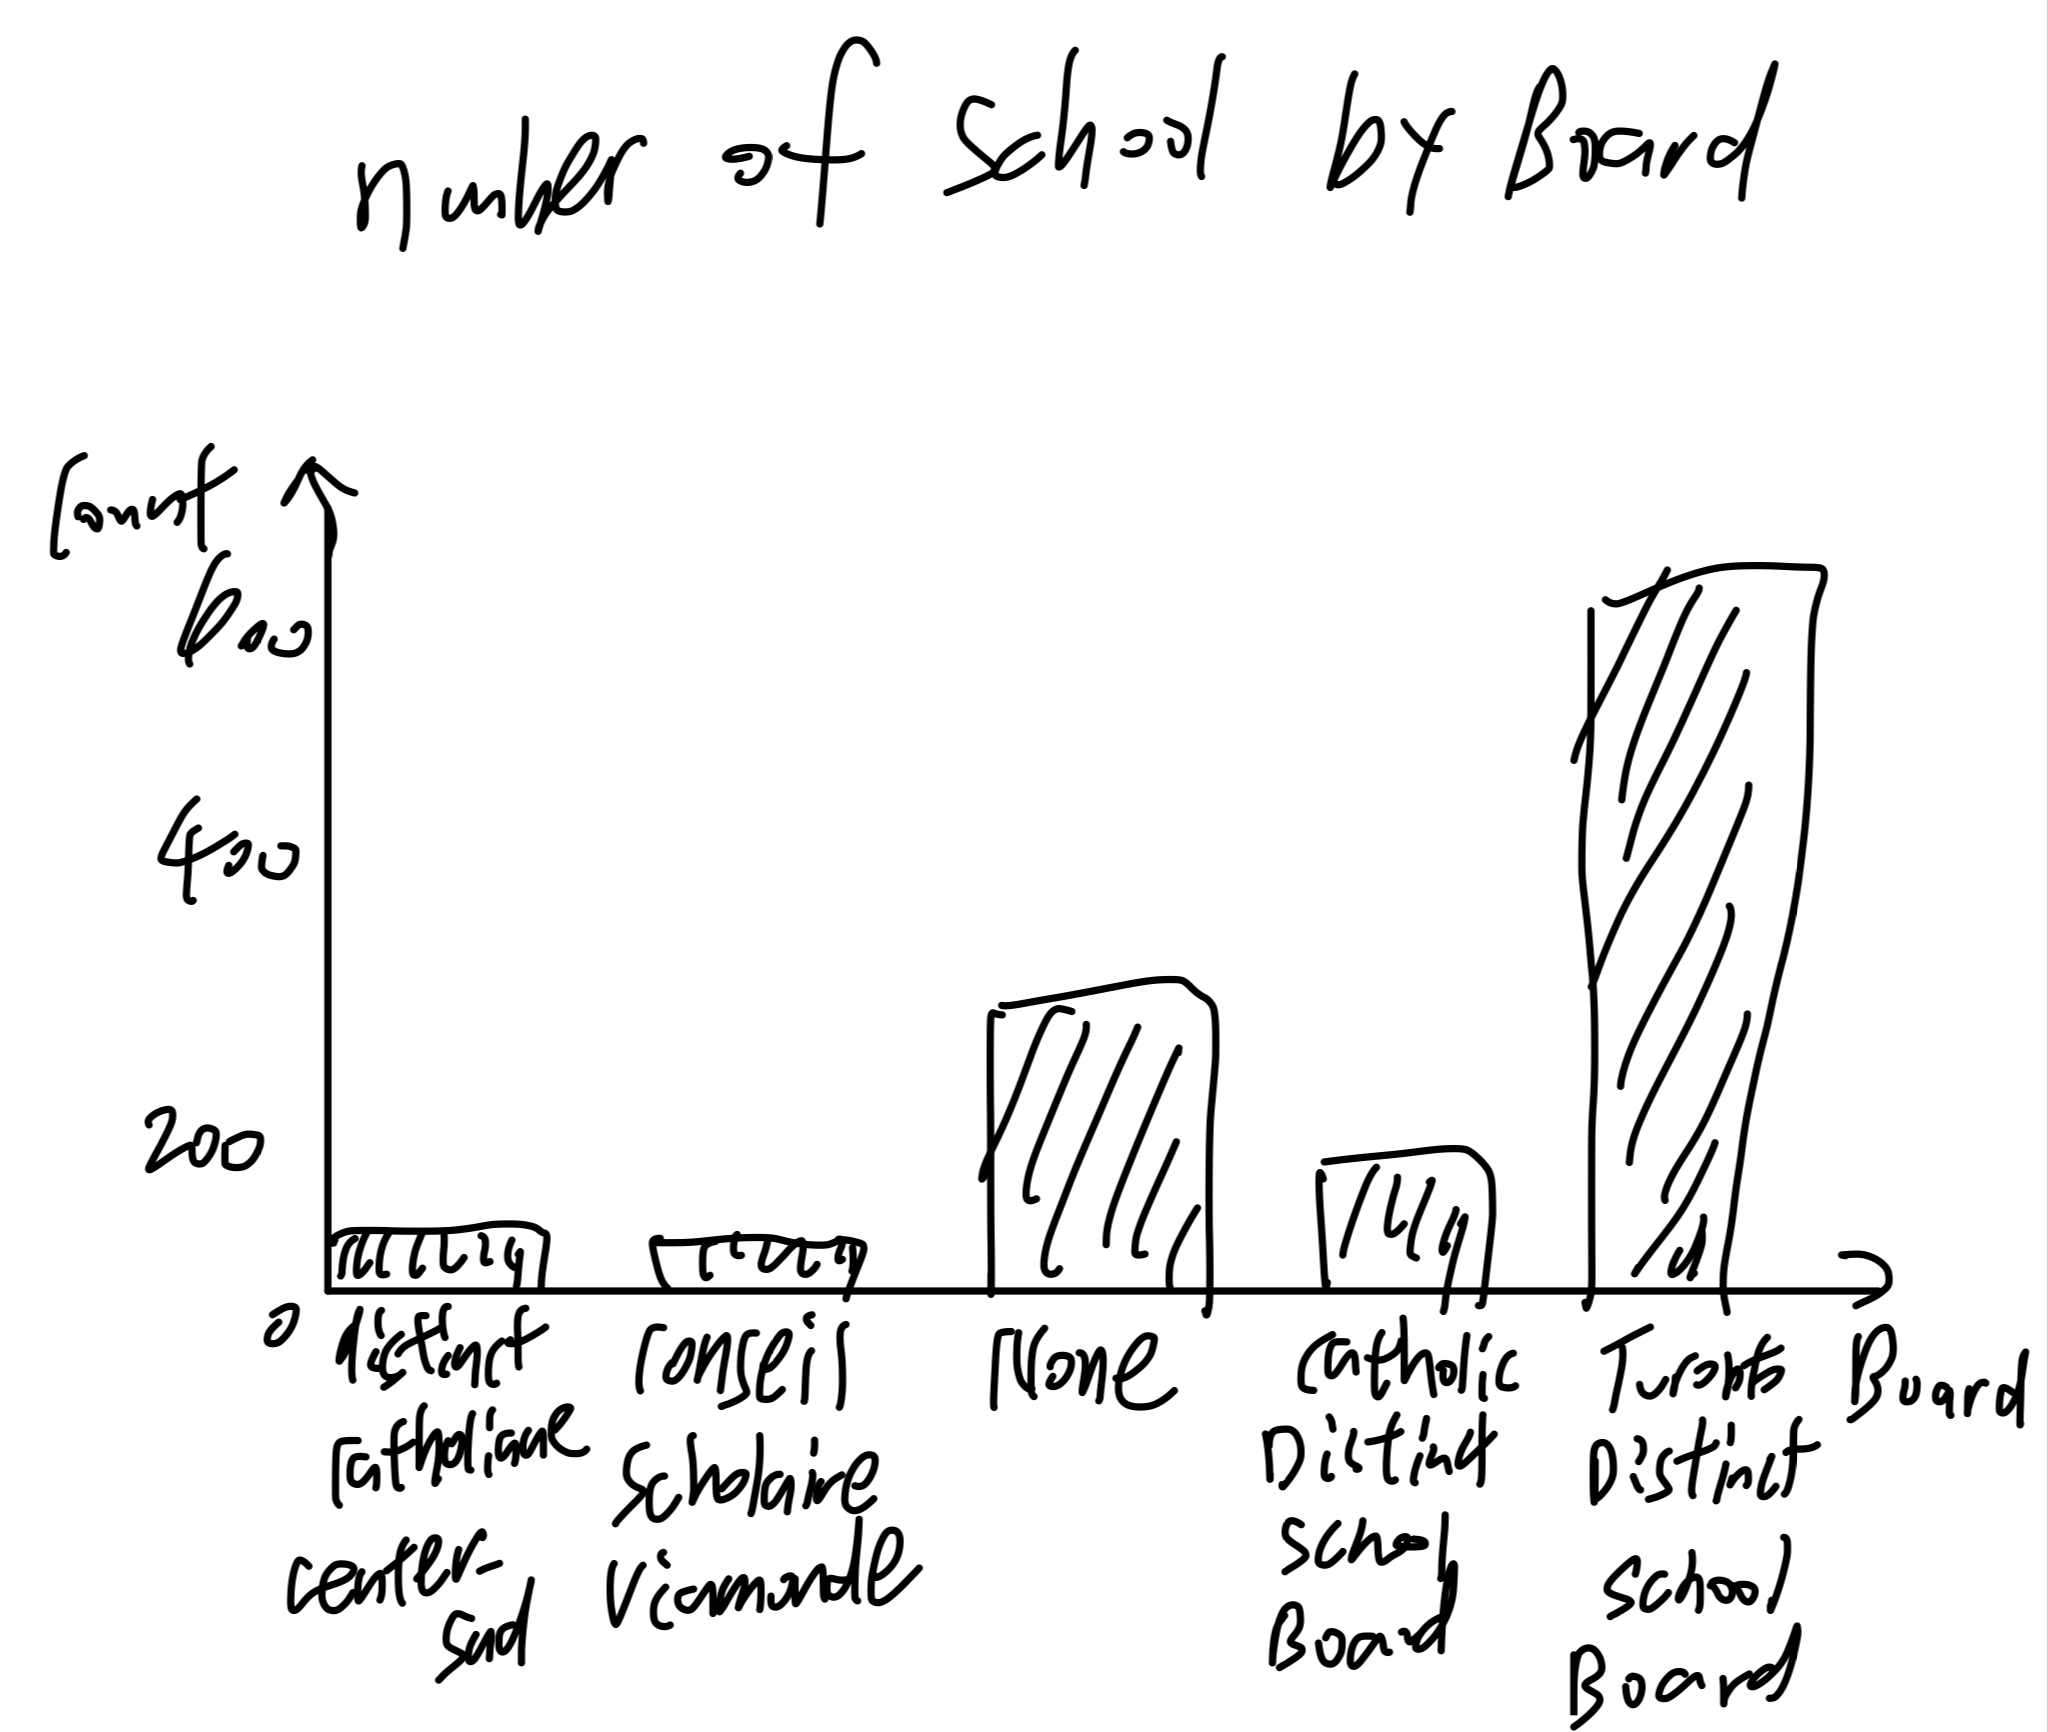 Number of School by Board
Count
600
400
200
0
distinct
Catholique
center-
Sud
Conseil
Scholaire
Viamonde
None
Catholic
Distinct
School
Board
Toronto
Distinct
School
Board
Board